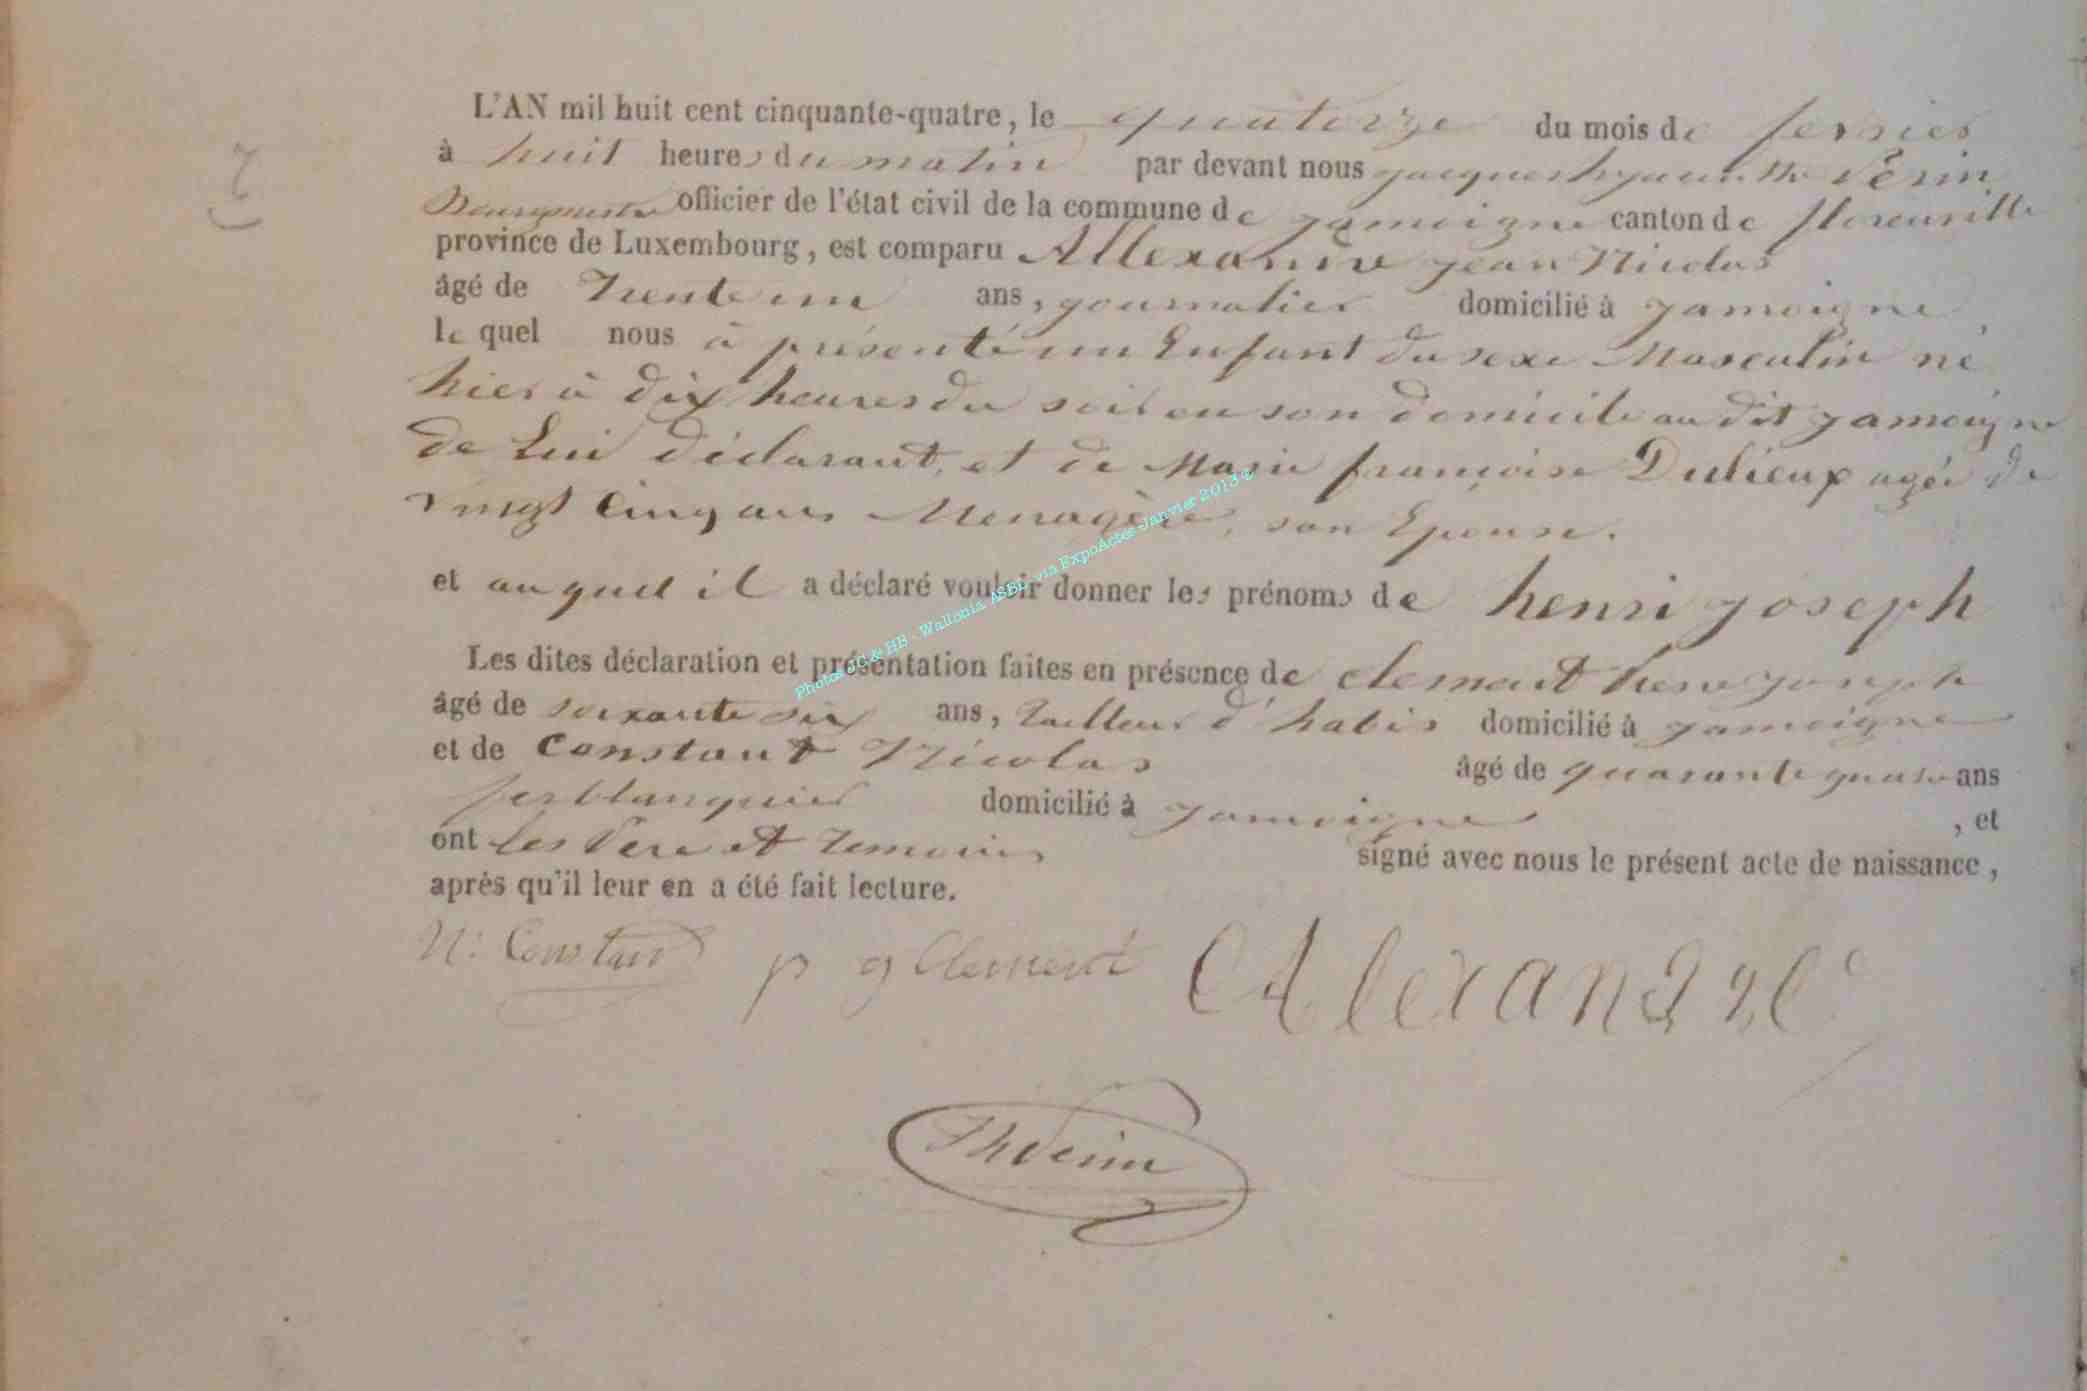 L'AN mil huit cent cinquante-quatre, le quatorze du mois de fevrier
à huit heures du matin par devant nous jacques hyacinthe Vérin
Bourgmestre officier de l'état civil de la commune de jamoigne canton de florenville
province de Luxembourg, est comparu Allexandre jean Nicolas
âgé de Trente un ans, journalier domicilié à jamoigne
le quel nous à présenté un Enfant du sexe Masculin né
hier à dix heures du soir en son domicile au dit jamoigne
de Lui déclarant, et de Marie françoise Dulieux agée de
vingt Cinq ans Menagère, son Epouse.
et auquel il a déclaré vouloir donner les prénoms de henri joseph
Les dites déclaration et présentation faites en présence de clement joseph
âgé de soixante six ans, Tailleur d'habis domicilié à jamoigne
et de Constant Nicolas âgé de quarante quatre ans
ferblanquier domicilié à jamoigne, et
ont les Pere et Temoins signé avec nous le présent acte de naissance,
après qu'il leur en a été fait lecture.
N: Constant p g Clement Alexandre
JhVerin
Photos JC & HB - Wallonia ASBL via ExpoActes Janvier 2013 ©